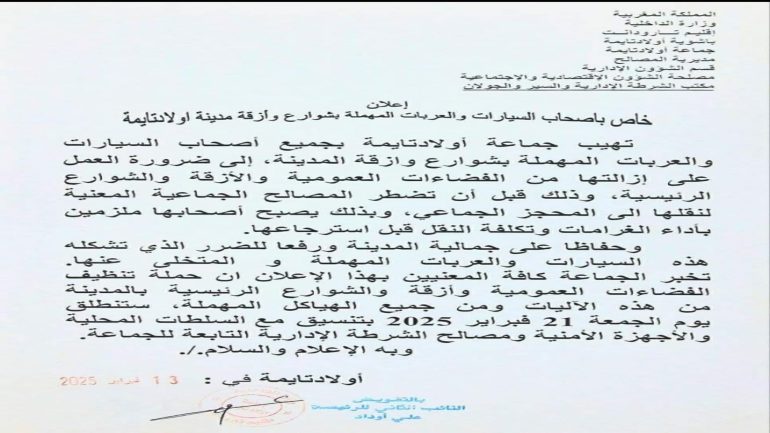 المملكة المغربية
وزارة الداخلية
إقليم تارودانت
باشوية أولادتايمة
جماعة أولادتايمة
مديرية المصالح
قسم الشؤون الإدارية
مصلحة الشؤون الاقتصادية والاجتماعية
مكتب الشرطة الإدارية والسير والجولان
إعلان
خاص بأصحاب السيارات والعربات المهملة بشوارع وأزقة مدينة اولادتايمة
تهيب جماعة أولادتايمة بجميع أصحاب السيارات
والعربات المهملة بشوارع وازقة المدينة، إلى ضرورة العمل
على إزالتها من الفضاءات العمومية والأزقة والشوارع
الرئيسية، وذلك قبل أن تضطر المصالح الجماعية المعنية
لنقلها الى المحجز الجماعي، وبذلك يصبح أصحابها ملزمين
بأداء الغرامات وتكلفة النقل قبل استرجاعها.
وحفاظا على جمالية المدينة ورفعا للضرر الذي تشكله
هذه السيارات والعربات المهملة و المتخلى عنها.
تخبر الجماعة كافة المعنيين بهذا الإعلان ان حملة تنظيف
الفضاءات العمومية وأزقة والشوارع الرئيسية بالمدينة
من هذه الآليات ومن جميع الهياكل المهملة، ستنطلق
يوم الجمعة 21 فبراير 2025 بتنسيق مع السلطات المحلية
والأجهزة الأمنية ومصالح الشرطة الإدارية التابعة للجماعة.
وبه الإعلام والسلام./.
أولادتايمة في : 13 فبراير 2025
بالتفويض
النائب الثاني للرئيسة
علي أوداد